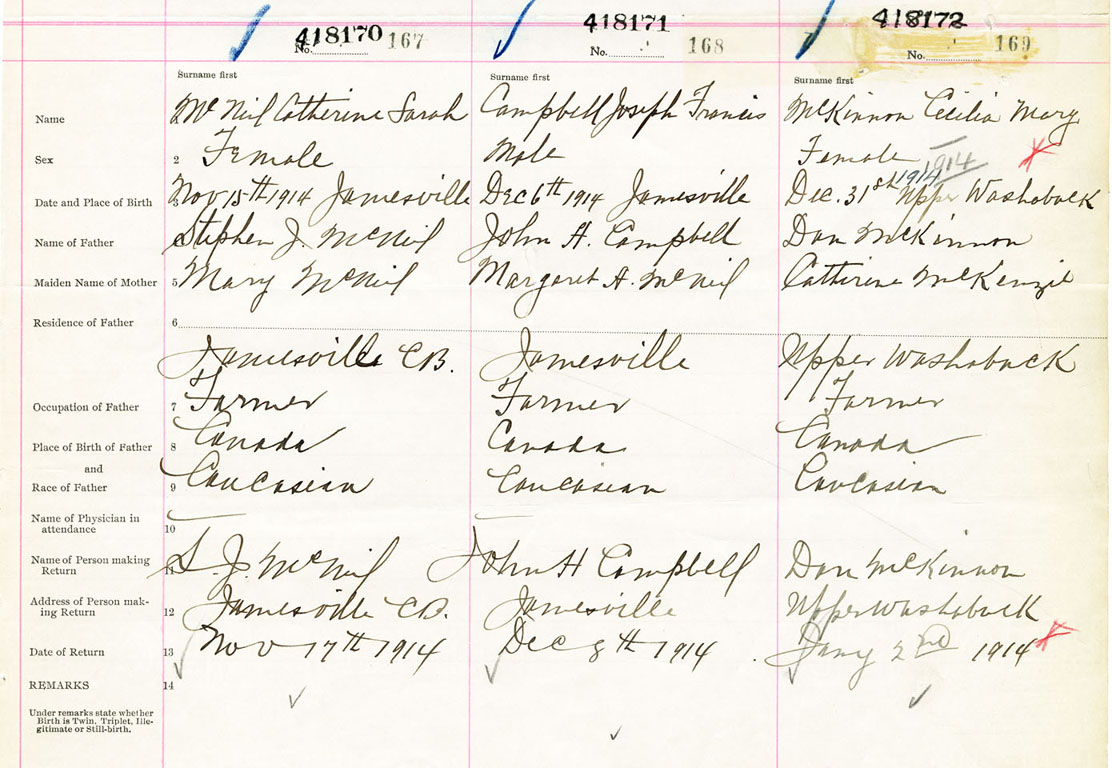 418170 167 418171 168 418172 169
No. No. No.
Surname first Surname first Surname first
Name McNeil Catherine Sarah Campbell Joseph Francis McKinnon Cecilia Mary
Sex 2 Female Male Female 1914
Date and Place of Birth Nov 15th 1914 Jamesville Dec 6th 1914 Jamesville Dec. 31st 1914 Upper Washaback
Name of Father Stephen J. McNeil John H. Campbell Dan McKinnon
Maiden Name of Mother 5 Mary McNeil Margaret A. McNeil Catherine McKenzie
Residence of Father 6
Jamesville C.B. Jamesville Upper Washaback
Occupation of Father 7 Farmer Farmer Farmer
Place of Birth of Father 8 Canada Canada Canada
and
Race of Father 9 Caucasian Caucasian Caucasian
Name of Physician in
attendance 10
Name of Person making
Return 11 S. J. McNeil John H Campbell Dan McKinnon
Address of Person mak-
ing Return 12 Jamesville C.B. Jamesville Upper Washaback
Date of Return 13 Nov 17th 1914 Dec 8th 1914 Jany 2nd 1914
REMARKS 14
Under remarks state whether
Birth is Twin, Triplet, Ille-
gitimate or Still-birth.